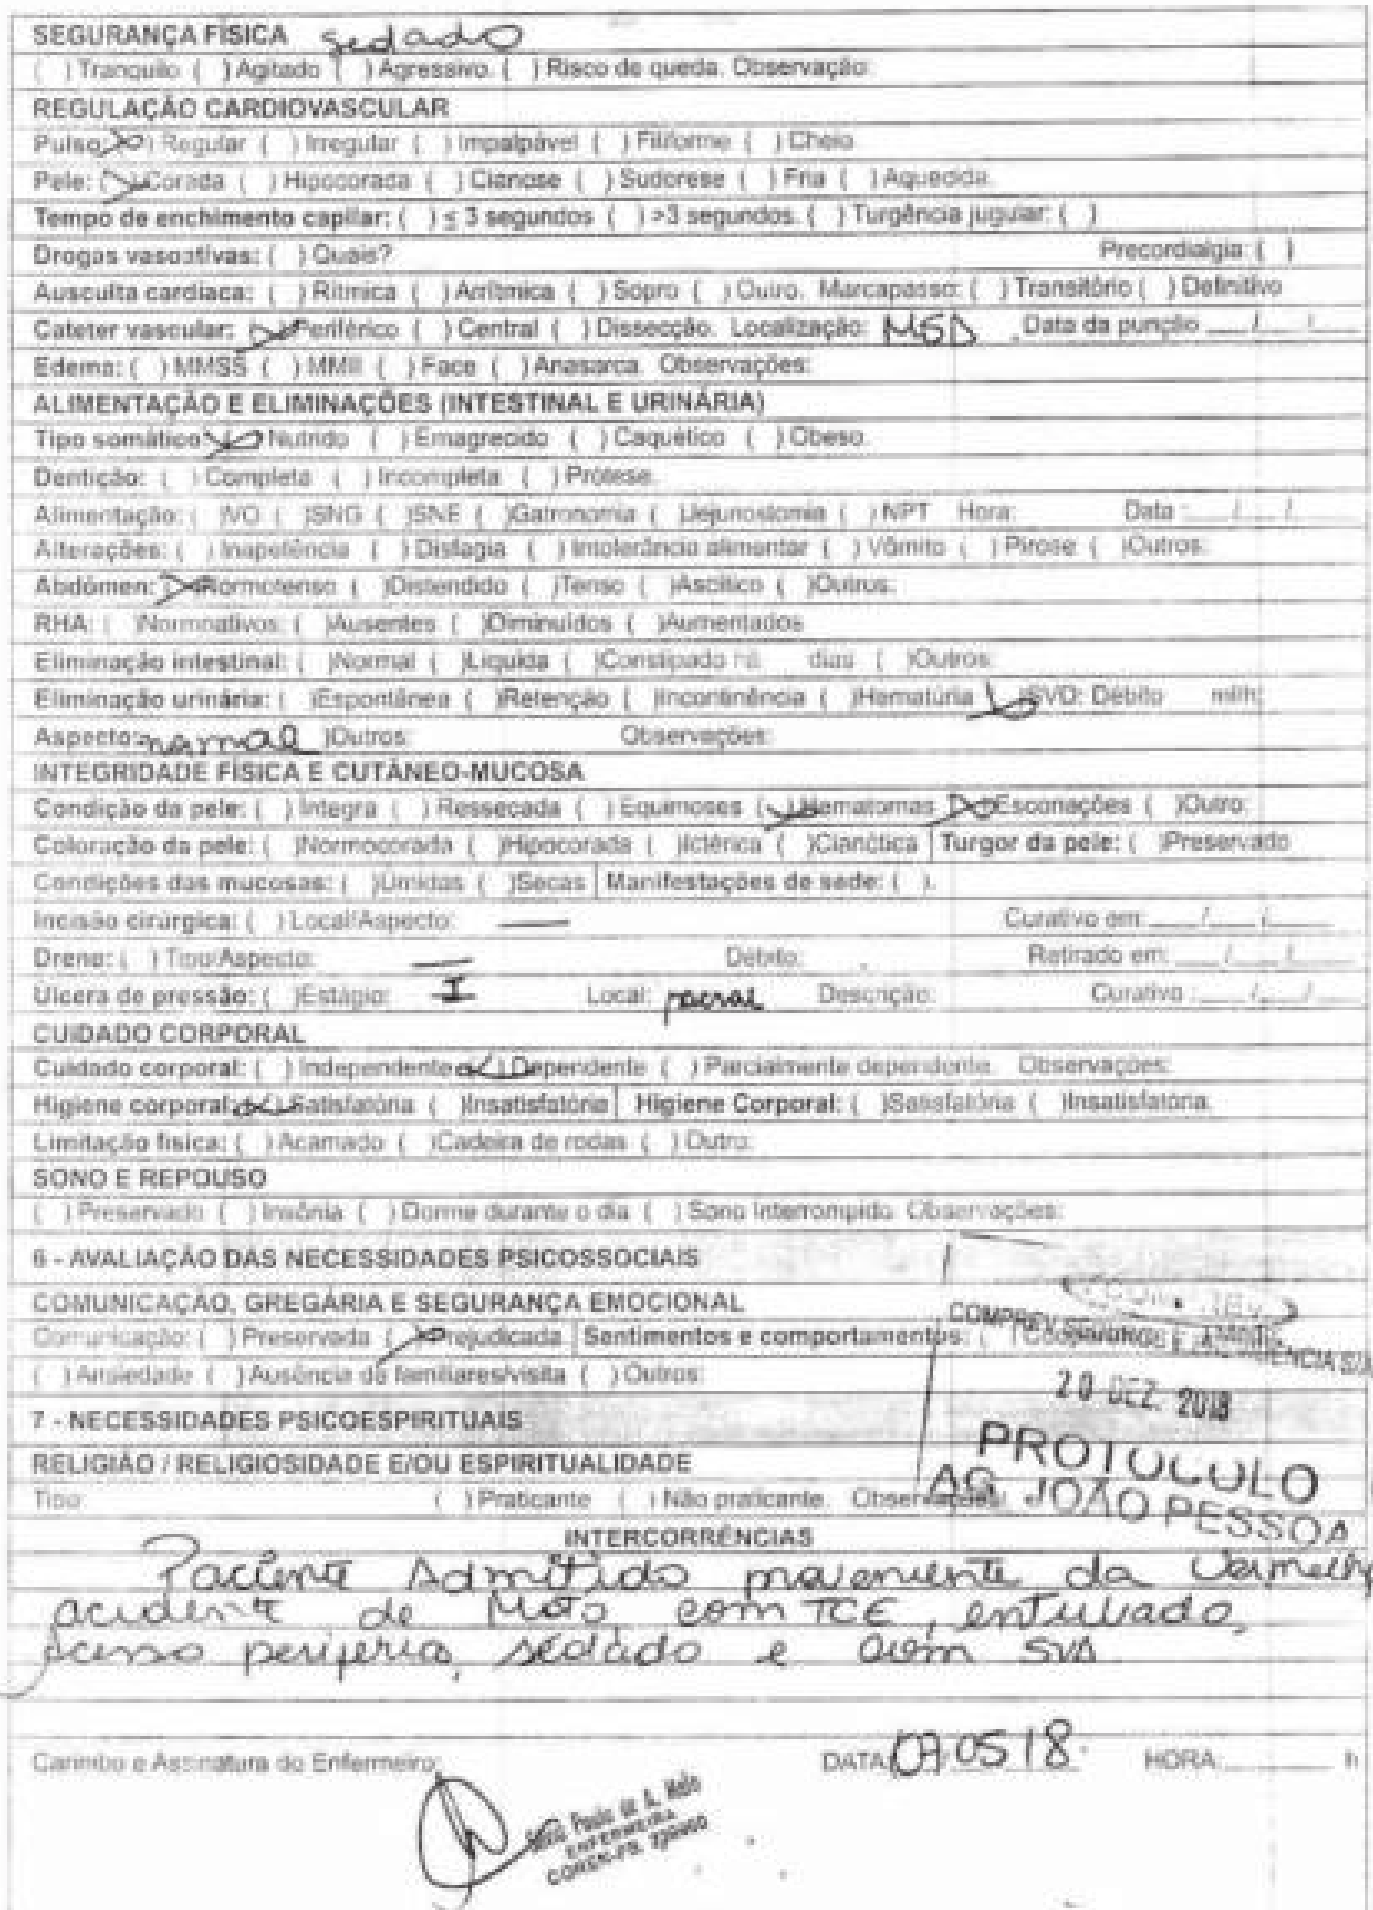 SEGURANÇA FÍSICA sedado
( ) Tranquilo ( ) Agitado ( ) Agressivo. ( ) Risco de queda. Observação:
REGULAÇÃO CARDIOVASCULAR
Pulso: (x) Regular ( ) Irregular ( ) Impalpável ( ) Filiforme ( ) Cheio
Pele: (x) Corada ( ) Hipocorada ( ) Cianose ( ) Sudorese ( ) Fria ( ) Aquecida.
Tempo de enchimento capilar: ( ) ≤ 3 segundos ( ) >3 segundos. ( ) Turgência jugular: ( )
Drogas vasoativas: ( ) Quais? Precordialgia: ( )
Ausculta cardíaca: ( ) Rítmica ( ) Arrítmica ( ) Sopro ( ) Outro. Marcapasso: ( ) Transitório ( ) Definitivo
Cateter vascular: (x) Periférico ( ) Central ( ) Dissecção. Localização: MSD . Data da punção ___/___/___
Edema: ( ) MMSS ( ) MMII ( ) Face ( ) Anasarca. Observações:
ALIMENTAÇÃO E ELIMINAÇÕES (INTESTINAL E URINÁRIA)
Tipo somático: (x) Nutrido ( ) Emagrecido ( ) Caquético ( ) Obeso.
Dentição: ( ) Completa ( ) Incompleta ( ) Prótese.
Alimentação: ( )VO ( )SNG ( )SNE ( )Gatronomia ( )Jejunostomia ( )NPT Hora: Data : ___/___/
Alterações: ( ) Inapetência ( ) Disfagia ( ) Intolerância alimentar ( ) Vômito ( ) Pirose ( )Outros:
Abdômen: (x)Normotenso ( )Distendido ( )Tenso ( )Ascítico ( )Outros:
RHA: ( )Normoativos: ( )Ausentes ( )Diminuídos ( )Aumentados
Eliminação intestinal: ( )Normal ( )Líquida ( )Constipado há dias ( )Outros:
Eliminação urinária: ( )Espontânea ( )Retenção ( )Incontinência ( )Hematúria (x)SVD: Débito ml/h;
Aspecto: normal )Outros: Observações:
INTEGRIDADE FÍSICA E CUTÂNEO-MUCOSA
Condição da pele: ( ) Íntegra ( ) Ressecada ( ) Equimoses (x) Hematomas (x) Escoriações ( )Outro:
Coloração da pele: ( )Normocorada ( )Hipocorada ( )Ictérica ( )Cianótica Turgor da pele: ( )Preservado
Condições das mucosas: ( )Úmidas ( )Secas Manifestações de sede: ( ).
Incisão cirúrgica: ( ) Local/Aspecto: — Curativo em: ___/___/___
Dreno: ( ) Tipo/Aspecto: — Débito: . Retirado em: ___/___/___
Úlcera de pressão: ( )Estágio: I Local: sacral Descrição: Curativo : ___/___/___
CUIDADO CORPORAL
Cuidado corporal: ( ) Independente (x) Dependente ( ) Parcialmente dependente. Observações:
Higiene corporal: (x) Satisfatória ( )Insatisfatória Higiene Corporal: ( )Satisfatória ( )Insatisfatória.
Limitação física: ( ) Acamado ( )Cadeira de rodas ( ) Outro:
SONO E REPOUSO
( ) Preservado ( ) Insônia ( ) Dorme durante o dia ( ) Sono Interrompido. Observações:
6 - AVALIAÇÃO DAS NECESSIDADES PSICOSSOCIAIS
COMUNICAÇÃO, GREGÁRIA E SEGURANÇA EMOCIONAL
Comunicação: ( ) Preservada (x) Prejudicada Sentimentos e comportamentos: ( )
COMPREV
( ) Ansiedade ( ) Ausência de familiares/visita ( ) Outros:
20 DEZ. 2018
7 - NECESSIDADES PSICOESPIRITUAIS
PROTOCOLO
AG. JOÃO PESSOA
RELIGIÃO / RELIGIOSIDADE E/OU ESPIRITUALIDADE
Tipo: ( ) Praticante ( ) Não praticante. Observações:
INTERCORRÊNCIAS
Paciente Admitido proveniente da Vermelha
acidente de Moto, com TCE, entubado,
acesso periferico, sedado e com SVD
Carimbo e Assinatura do Enfermeiro: DATA: 07 05 18. HORA: ______ h
Paula de A. Melo
ENFERMEIRA